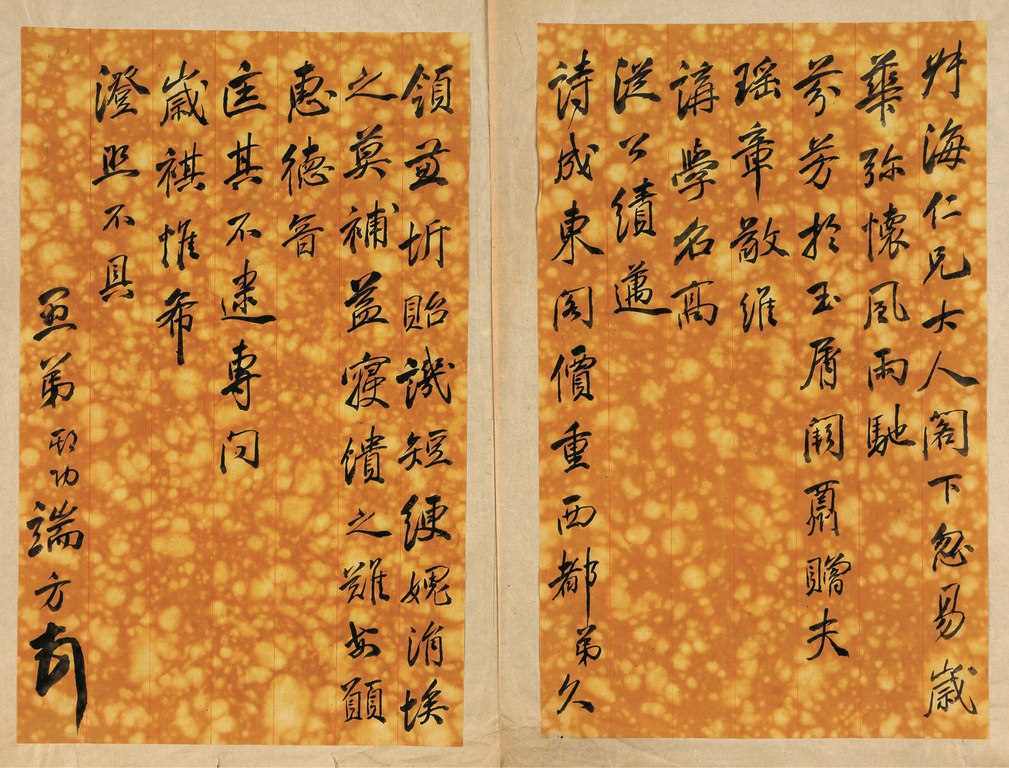 叔海仁兄大人閣下忽易歲
華弥懷風雨馳
芬芳於玉屑闕羃贈夫
瑶章敬維
講學名高
從公績邁
詩成東閣價重西都弟久
領畺圻貽譏短綆媿涓埃
之莫補益寢饋之難安願
惠德音
匡其不逮專问
歲祺惟希
澄照不具
愚弟期功端方頓